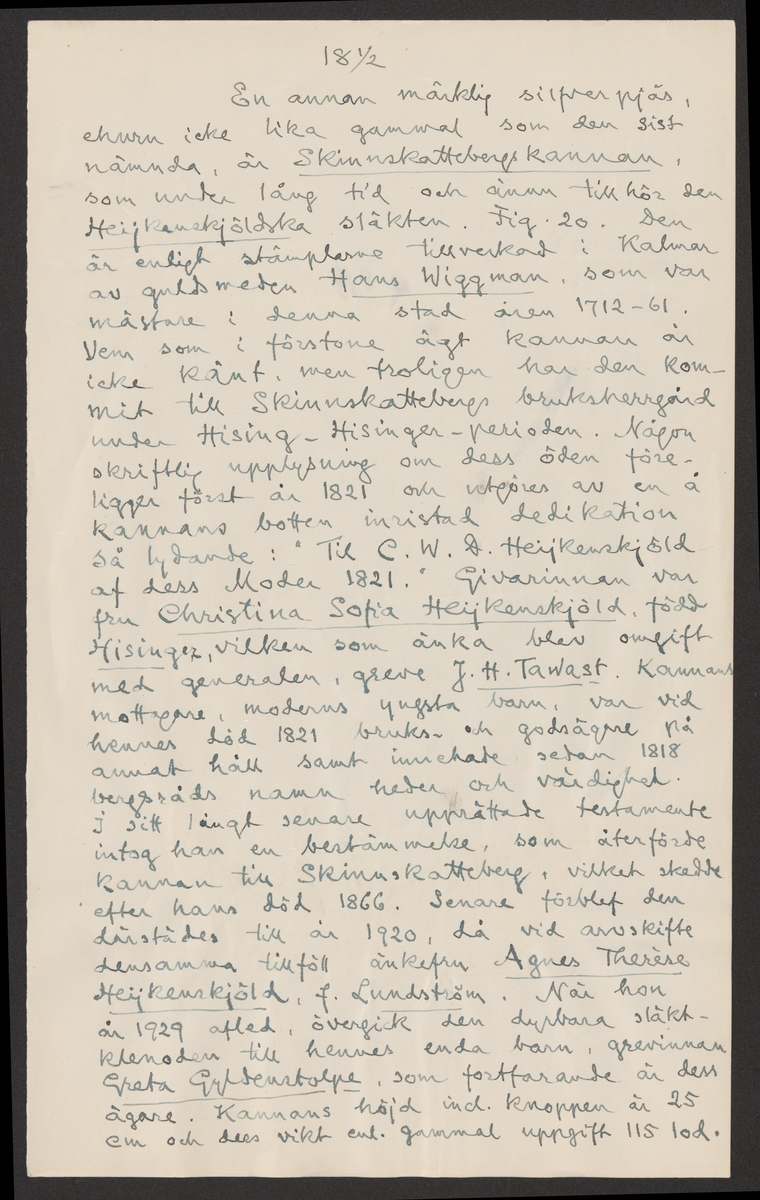 18 1/2
En annan märklig silfverpjäs,
ehuru icke lika gammal som den sist
nämnda, är Skinnskattebergskannan,
som under lång tid och ännu tillhör den
Heijkenskjöldska släkten. Fig. 20. Den
är enligt stämplarne tillverkad i Kalmar
av guldsmeden Hans Wiggman, som var
mästare i denna stad åren 1712-61.
Vem som i förstone ägt kannan är
icke känt, men troligen har den kom-
mit till Skinnskattebergs bruksherrgård
under Hising-Hisinger-perioden. Någon
skriftlig upplysning om dess öden före-
ligger först år 1821 och utgöres av en å
kannans botten inristad dedikation
så lydande: "Til C. W. D. Heijkenskjöld
af dess Moder 1821." Givarinnan var
fru Christina Sofia Heijkenskjöld, född
Hisinger, vilken som änka blev omgift
med generalen, greve J. H. Tawast. Kannans
mottagare, moderns yngsta barn, var vid
hennes död 1821 bruks- och godsägare på
annat håll samt innehade sedan 1818
bergsråds namn heder och värdighet.
I sitt långt senare upprättade testamente
intog han en bestämmelse, som återförde
kannan till Skinnskatteberg, vilket skedde
efter hans död 1866. Senare förblef den
därstädes till år 1920, då vid arvskifte
densamma tillföll änkefru Agnes Therèse
Heijkenskjöld, f. Lundström. När hon
år 1929 afled, övergick den dyrbara släkt-
klenoden till hennes enda barn, grevinnan
Greta Gyldenstolpe, som fortfarande är dess
ägare. Kannans höjd incl. knoppen är 25
cm och dess vikt enl. gammal uppgift 115 lod.